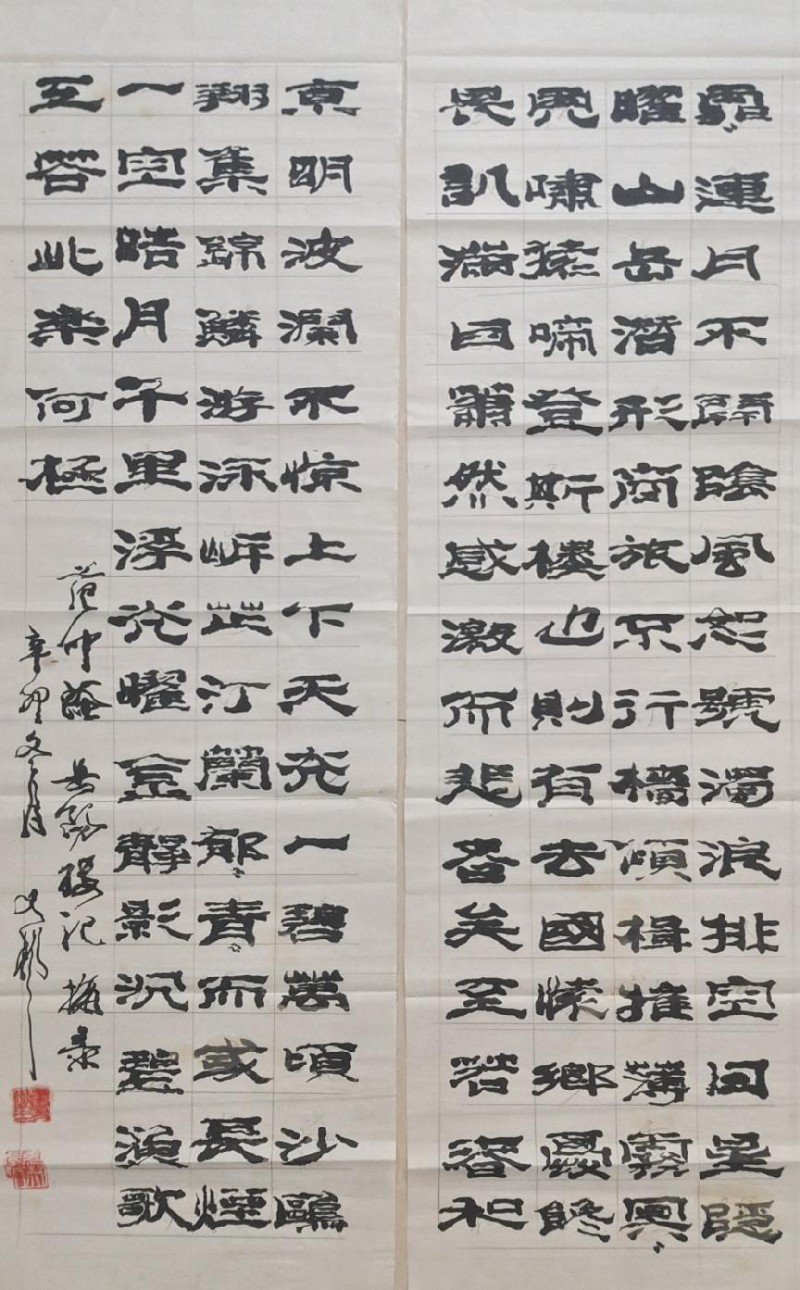 霏〻連月不開陰風怒號濁浪排空日星隱
曜山岳潛形商旅不行檣傾楫摧薄霧冥〻
虎嘯猿啼登斯樓也則有去國懷鄉憂讒
畏讥滿目蕭然感激而悲者矣至若春和
景明波瀾不惊上下天光一碧萬頃沙鷗
翔集錦鱗游泳岸芷汀蘭郁〻青〻而或長煙
一空晧月千里浮光曜金靜影沉璧漁歌
互答此樂何極
范仲淹 岳陽樓記 摘录
辛卯冬月